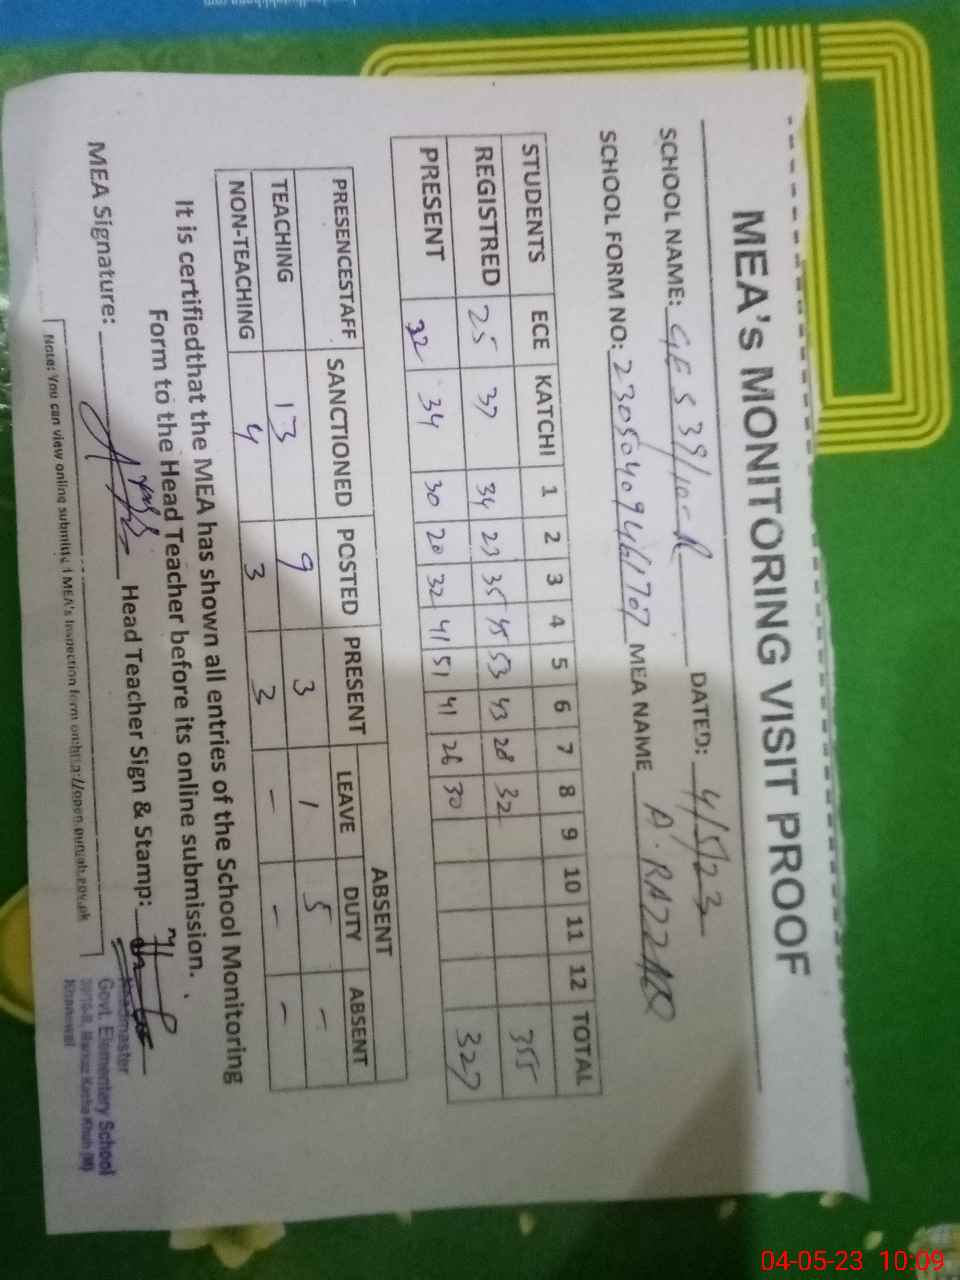 MEA's MONITORING VISIT PROOF
SCHOOL NAME: GES 39/10-R DATED: 4/5/23
SCHOOL FORM NO: MEA NAME A. RAZZAQ
STUDENTS ECE KATCHI 1 2 3 4 5 6 7 8 9 10 11 12 TOTAL
REGISTRED 25 37 34 23 35 45 53 43 28 32 355
PRESENT 32 34 30 20 32 41 51 41 26 30 327
ABSENT
PRESENCESTAFF SANCTIONED POSTED PRESENT LEAVE DUTY ABSENT
TEACHING 13 9 3 1 5 -
NON-TEACHING 4 3 3 - - -
It is certifiedthat the MEA has shown all entries of the School Monitoring
Form to the Head Teacher before its online submission.
MEA Signature: Head Teacher Sign & Stamp:
Headmaster
Govt. Elementary School
39/10-R, Kacha Khuh (M)
Khanewal
Note: You can view online submitted MEA's Inspection form on:http://open.punjab.gov.pk
04-05-23 10:09